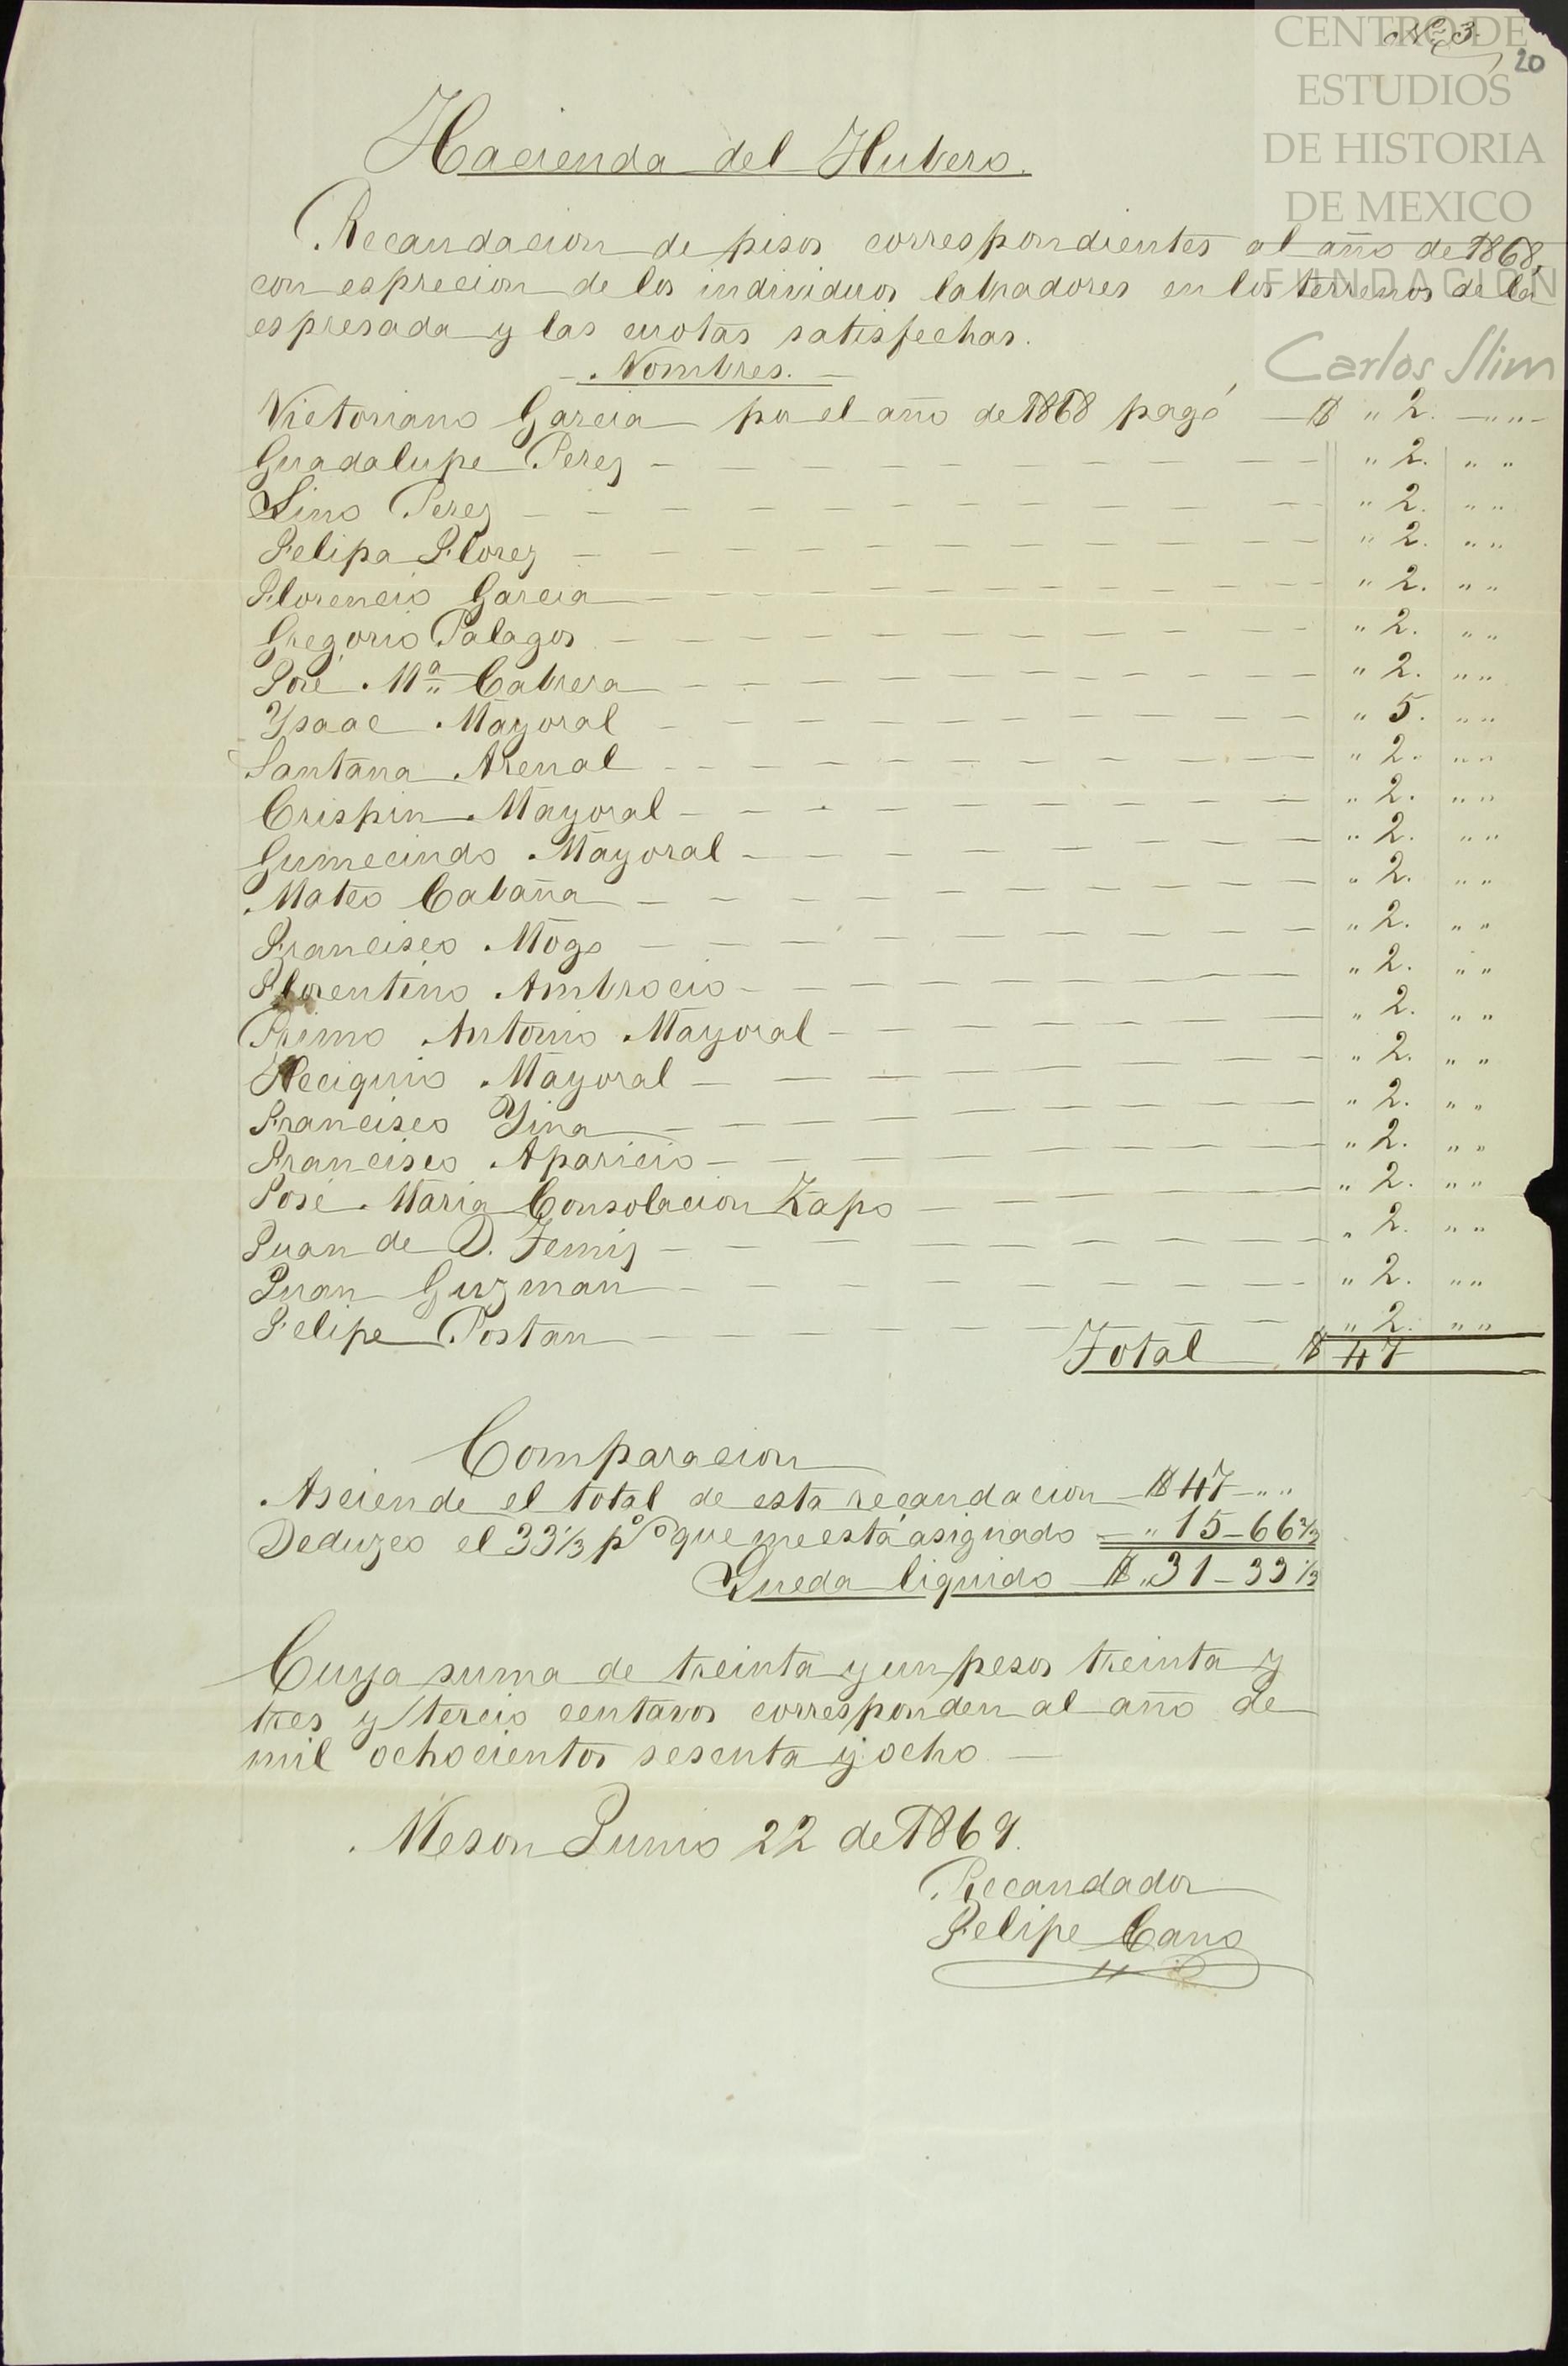 Nº 3.
20
CENTRO DE
ESTUDIOS
DE HISTORIA
DE MEXICO
FUNDACION
Carlos Slim
Hacienda del Hubero.
Recaudacion de pisos correspondientes al año de 1868,
con esprecion de los individuos labradores en los terrenos de la
espresada y las cuotas satisfechas.
Nombres.
Victoriano Garcia por el año de 1868 pagó $ " 2. " "
Guadalupe Perez " 2. " "
Lino Perez " 2. " "
Felipa Florez " 2. " "
Florencio Garcia " 2. " "
Gregorio Palagos " 2. " "
José Mª Cabrera " 2. " "
Ysaac Mayoral " 5. " "
Santana Arenal " 2. " "
Crispin Mayoral " 2. " "
Gumecindo Mayoral " 2. " "
Mateo Cabaña " 2. " "
Francisco Mogo " 2. " "
Florentino Ambrocio " 2. " "
Primo Antonio Mayoral " 2. " "
Neciquio Mayoral " 2. " "
Francisco Yina " 2. " "
Francisco Aparicio " 2. " "
José Maria Consolacion Zapo " 2. " "
Juan de D. Femiz " 2. " "
Juan Guzman " 2. " "
Felipe Postan " 2. " "
Total $ 47
Comparacion
Asciende el total de esta recaudacion $ 47 " "
Deduzco el 33 1/3 p% que me está asignado " 15-66 2/3
Queda liquido $ " 31-33 1/3
Cuya suma de treinta y un pesos treinta y
tres y tercio centavos corresponden al año de
mil ochocientos sesenta y ocho.
Meson Junio 22 de 1869.
Recaudador
Felipe Cano